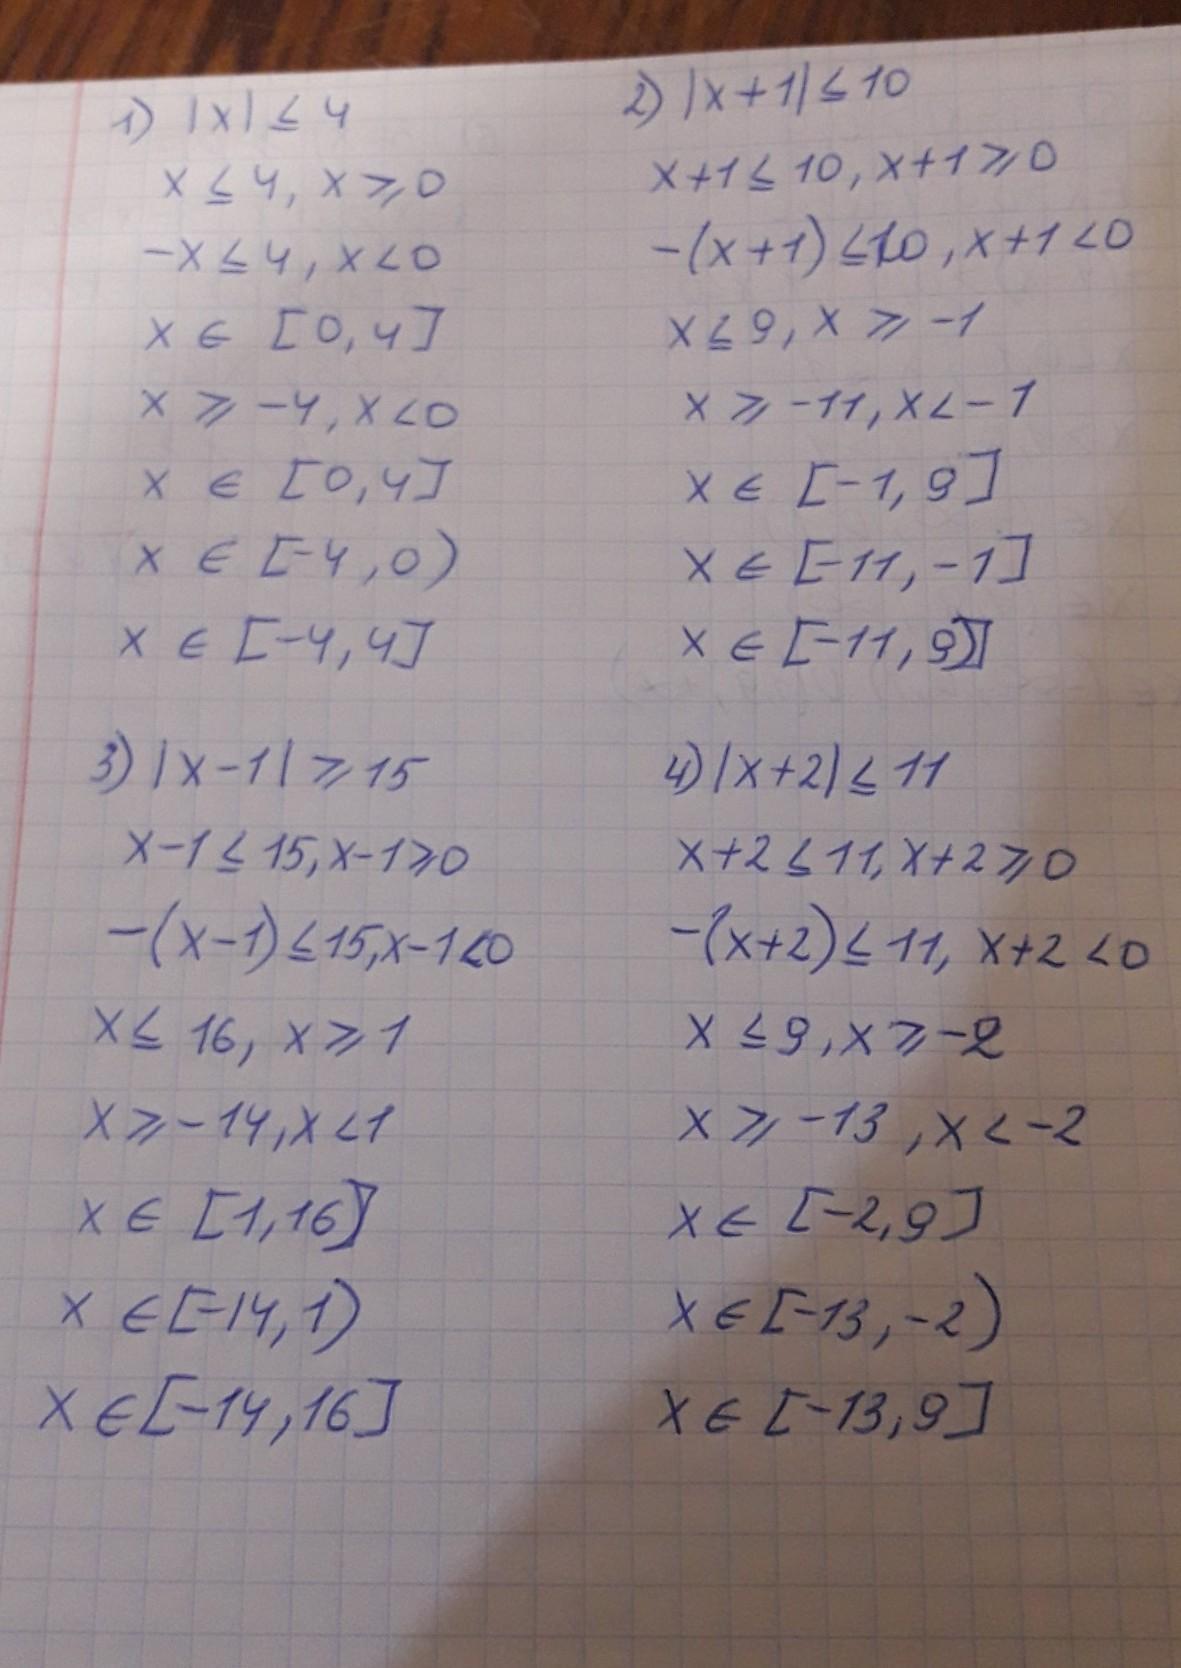 1) |x| ≤ 4
x ≤ 4, x ⩾ 0
-x ≤ 4, x < 0
x ∈ [0, 4]
x ⩾ -4, x < 0
x ∈ [0, 4]
x ∈ [-4, 0)
x ∈ [-4, 4]
2) |x + 1| ≤ 10
x + 1 ≤ 10, x + 1 ⩾ 0
-(x + 1) ≤ 10, x + 1 < 0
x ≤ 9, x ⩾ -1
x ⩾ -11, x < -1
x ∈ [-1, 9]
x ∈ [-11, -1]
x ∈ [-11, 9]
3) |x - 1| ⩾ 15
x - 1 ≤ 15, x - 1 ⩾ 0
-(x - 1) ≤ 15, x - 1 < 0
x ≤ 16, x ⩾ 1
x ⩾ -14, x < 1
x ∈ [1, 16]
x ∈ [-14, 1)
x ∈ [-14, 16]
4) |x + 2| ≤ 11
x + 2 ≤ 11, x + 2 ⩾ 0
-(x + 2) ≤ 11, x + 2 < 0
x ≤ 9, x ⩾ -2
x ⩾ -13, x < -2
x ∈ [-2, 9]
x ∈ [-13, -2)
x ∈ [-13, 9]